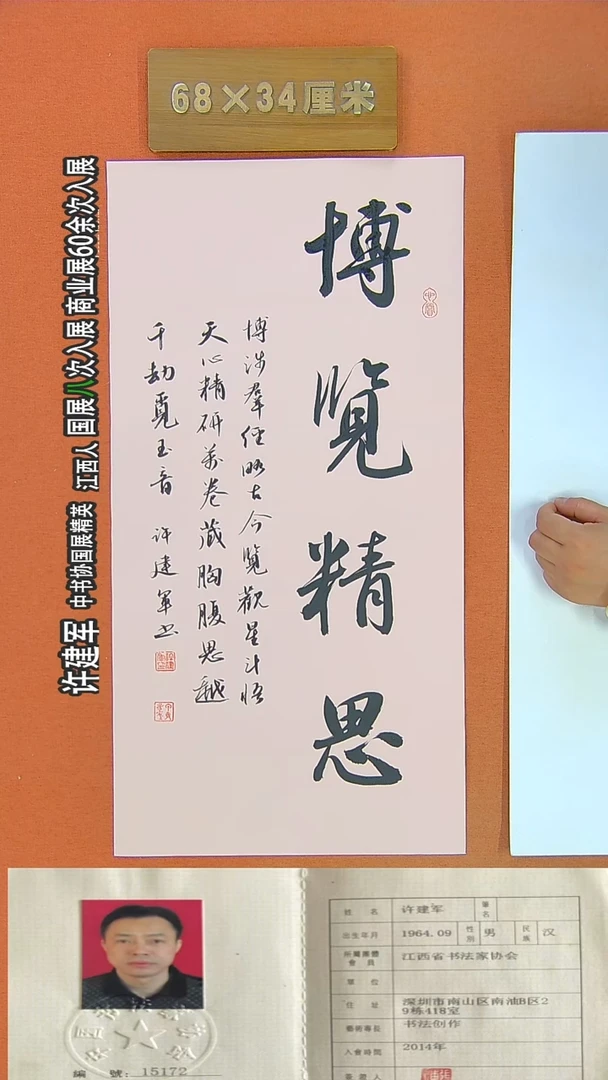 68×34厘米
博览精思
博涉群经略古今览观星斗悟
天心精研万卷藏胸腹思越
千劫觅玉音 许建军书
许建军 中书协国展精英 江西人 国展八次入展 商业展60余次入展
姓名 许建军 笔名
出生年月 1964.09 性别 男 民族 汉
所属团体会员 江西省书法家协会
单位
住址 深圳市南山区南油B区29栋418室
艺术专长 书法创作
入会时间 2014年
编号：15172